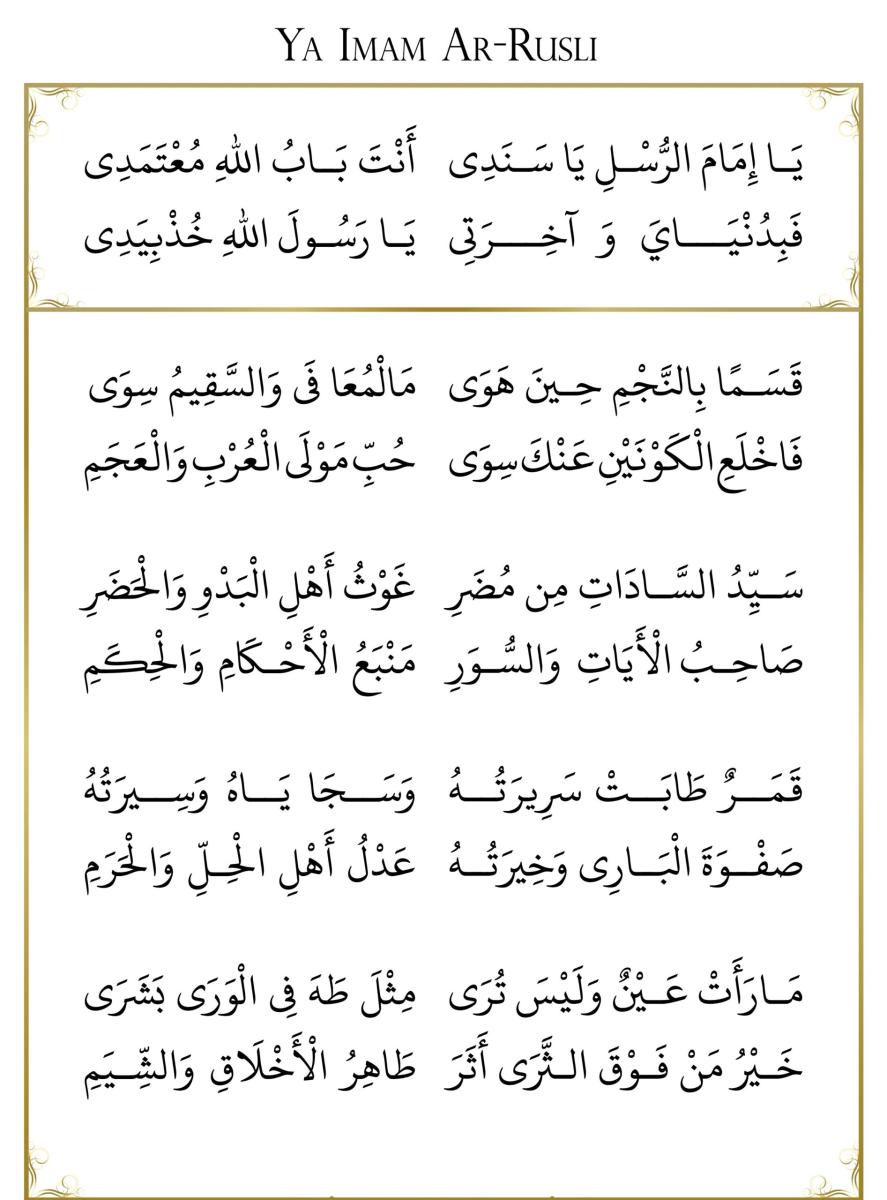 YA IMAM AR-RUSLI
يَا إِمَامَ الرُّسْلِ يَا سَنَدِى أَنْتَ بَابُ اللهِ مُعْتَمَدِى
فَبِدُنْيَايَ وَ آخِرَتِى يَا رَسُولَ اللهِ خُذْبِيَدِى
قَسَمًا بِالنَّجْمِ حِينَ هَوَى مَالْمُعَا فَى وَالسَّقِيمُ سِوَى
فَاخْلَعِ الْكَوْنَيْنِ عَنْكَ سِوَى حُبِّ مَوْلَى الْعُرْبِ وَالْعَجَمِ
سَيِّدُ السَّادَاتِ مِن مُضَرِ غَوْثُ أَهْلِ الْبَدْوِ وَالْحَضَرِ
صَاحِبُ الْأَيَاتِ وَالسُّوَرِ مَنْبَعُ الْأَحْكَامِ وَالْحِكَمِ
قَمَرٌ طَابَتْ سَرِيرَتُهُ وَسَجَا يَاهُ وَسِيرَتُهُ
صَفْوَةَ الْبَارِى وَخِيرَتُهُ عَدْلُ أَهْلِ الْحِلِّ وَالْحَرَمِ
مَارَأَتْ عَيْنٌ وَلَيْسَ تُرَى مِثْلَ طَهَ فِى الْوَرَى بَشَرَى
خَيْرُ مَنْ فَوْقَ الثَّرَى أَثَرَ طَاهِرُ الْأَخْلَاقِ وَالشِّيَمِ